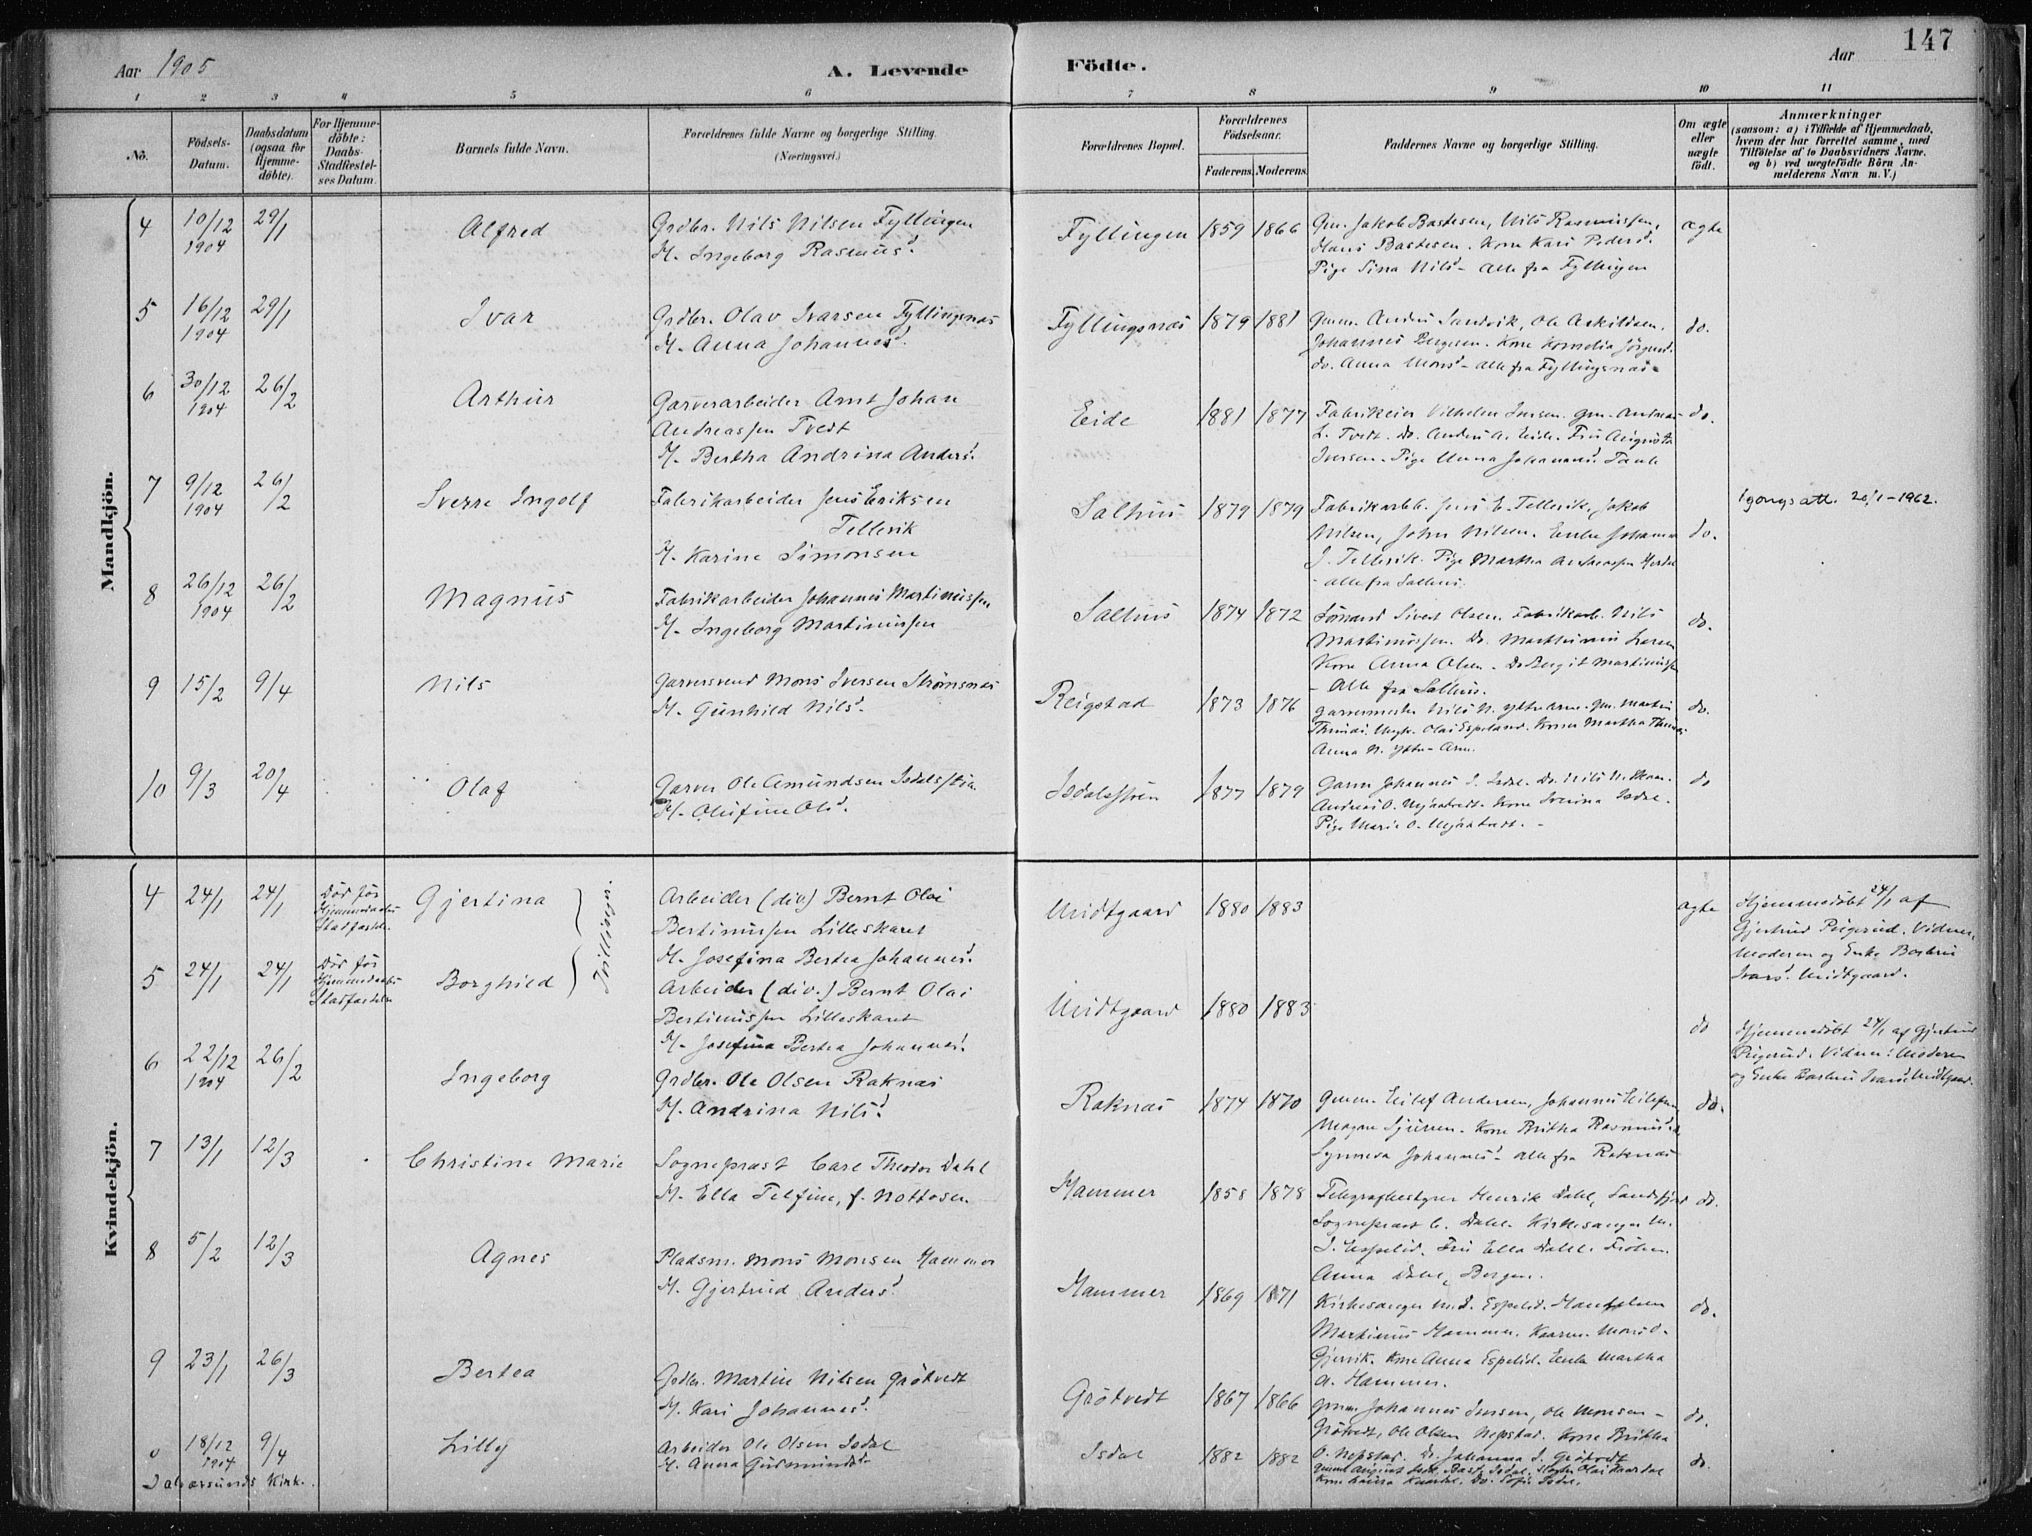 147
Aar 1905 A. Levende Födte. Aar
1 2 3 4 5 6 7 8 9 10 11
No.
Födsels-
Datum.
Daabsdatum
(ogsaa for
Hjemme-
döbte).
For Hjemme-
döbte:
Daabs-
Stadfæstel-
ses Datum.
Barnets fulde Navn.
Forældrenes fulde Navne og borgerlige Stilling.
(Næringsvei.)
Forældrenes Bopæl.
Forældrenes
Födselsaar.
Faderens. Moderens.
Faddernes Navne og borgerlige Stilling.
Om ægte
eller
uægte
födt.
Anmærkninger
(saasom: a) i Tilfælde af Hjemmedaab,
hvem der har forrettet samme, med
Tilföielse af to Daabsvidners Navne,
og b) ved uegtefödte Börn An-
melderens Navn m. V.)
Mandkjön.
4 10/12 1904 29/1 Alfred
Grdbr. Nils Nilsen Fyllingen
H. Ingeborg Rasmusd.
Fyllingen 1859 1866
Gm. Jakob Bastesen, Nils Rasmussen,
Hans Bastesen. Kone Kari Pedersd.
Pige Sina Nilsd - alle fra Fyllingen
ægte
5 16/12 1904 29/1 Ivar
Grdbr. Olav Ivarsen Fyllingsnæs
H. Anna Johannesd.
Fyllingsnæs 1879 1881
Gmm. Anders Sandvik, Ole Askildsen,
Johannes Bergesen. Kone Kornelia
do. Anna Monsd - alle fra Fyllingsnæs
do.
6 30/12 1904 26/2 Arthur
Garverarbeider Arnt Johan
Andreassen Tvedt
H. Bertha Andrina Andersd.
Eide 1881 1877
Fabrikeier Vilhelm Iversen. Gm. Andreas
L. Tvedt. Do. Anders A. Eide. Fru Augusta
Iversen. Pige Anna Johannesd.
do.
7 9/12 1904 26/2 Sverre Ingolf
Fabrikarbeider Jens Eriksen
Tellevik
H. Karine Simonsen
Salhus 1879 1879
Fabrikarbb. Jens E. Tellevik, Jakob
Nilsen, John Nilsen. Enke Johanna
J. Tellevik. Pige Martha Andreassen
- alle fra Salhus.
do.
Igangsatt. 20/1-1962.
8 26/12 1904 26/2 Magnus
Fabrikarbeider Johannes Martinussen
H. Ingeborg Martinussen
Salhus 1874 1872
Sömand Sivert Olsen. Fabrikarb. Nils
Martinussen. Do. Larsen
Kone Anna Olsen. Do Bergit Martinussen
- Alle fra Salhus.
do.
9 15/2 9/4 Nils
Garversvend Mons Iversen Strömsnæs
H. Gunhild Nilsd.
Reigstad 1873 1876
Garvermester Nils N. Ytre Arne. Gm. Martin
Olai Espeland. Koner Martha
Anna N. Ytre-Arne.
do.
10 9/3 20/4 Olaf
Garver Ole Amundsen Isdalsstøen
H. Olufine Olsd.
Isdalsstøen 1877 1879
Garver Johannes J. Isdal. Do. Nils
Andreas O. Mjaatvedt. Kone Isdal.
Pige Marie O. Mjaatvedt.
do
Kvindekjön.
4 24/1 24/1
Död før
Hjemmedaabs
Stadfæstelse.
Gjertina
Tvillinger.
Arbeider (div) Bernt Olai
Bertinussen Lilleskaret
H. Josefina Bertea Johannesd.
Midtgaard 1880 1883
ægte
Hjemmedöbt 24/1 af
Gjertrud Vidner:
Moderen og Enke
Ivarsd. Midtgaard.
5 24/1 24/1
Död før
Hjemmedaabs
Stadfæstelse
Borghild
Arbeider (div.) Bernt Olai
Bertinussen Lilleskaret
H. Josefina Bertea Johannesd.
Midtgaard 1880 1883
do
Hjemmedöbt 24/1 af Gjertrud
Vidner: Moderen
og Enke Ivarsd. Midtgaard.
6 22/12 1904 26/2 Ingeborg
Grdbr. Ole Olsen Raknæs
H. Andrina Nilsd.
Raknæs 1874 1870
Gmm. Eilef Andersen, Johannes Eilefsen
Magne Sjursen. Kone Britha Rasmusd.
Synneva Johannesd - alle fra Raknæs
do.
7 13/1 12/3 Christine Marie
Sogneprest Carl Theodor Dahl
H. Ella Telfine, f. Nottosen
Hammer 1858 1878
Telegrafbestyrer Henrik Dahl, Sandefjord
Sogneprest C. Dahl. Kirkesanger M.
J. Espelid. Fru Ella Dahl. Frøken
Anna Dahl, Bergen.
do.
8 5/2 12/3 Agnes
Pladsm. Mons Monsen Hammer
H. Gjertrud Andersd.
Hammer 1869 1871
Kirkesanger M.J. Espelid.
Martinus Hammer. Mons
Gjervik. Kone Anna Espelid. Enke Martha
A. Hammer.
do.
9 23/1 26/3 Bertea
Grdbr. Martin Nilsen Grötvedt
H. Kari Johannesd.
Grötvedt 1867 1866
Gmm. Johannes Iversen, Ole Monsen
Grötvedt, Ole Olsen Nepstad. Kone Britha
O. Nepstad. Do. Johanna J. Grötvedt
do.
0 18/12 1904 9/4 Lilly
Arbeider Ole Olsen Isdal
H. Anna Gudmundsd.
Isdal 1882 1882
Kone Laura Do. Sofie Isdal.
do.
Kirk.